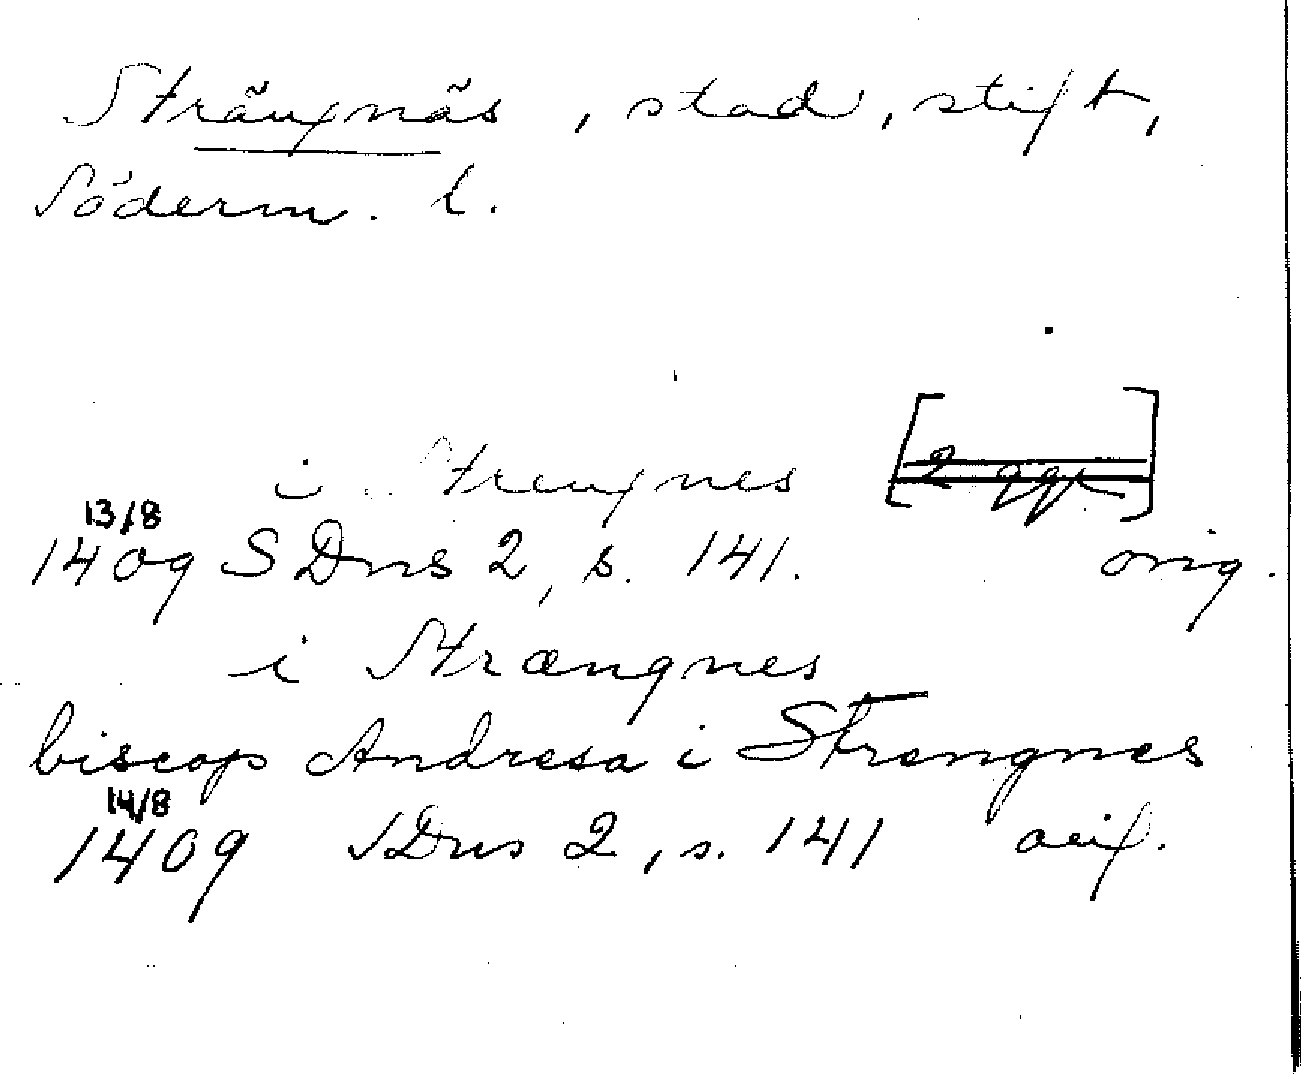 Strängnäs, stad, stift,
Söderm. l.
i Strengnes [2 ggr]
13/8
1409 SDns 2, s. 141. orig.
i Strængnes
biscop Andresa i Strengnes
14/8
1409 SDns 2, s. 141 orig.